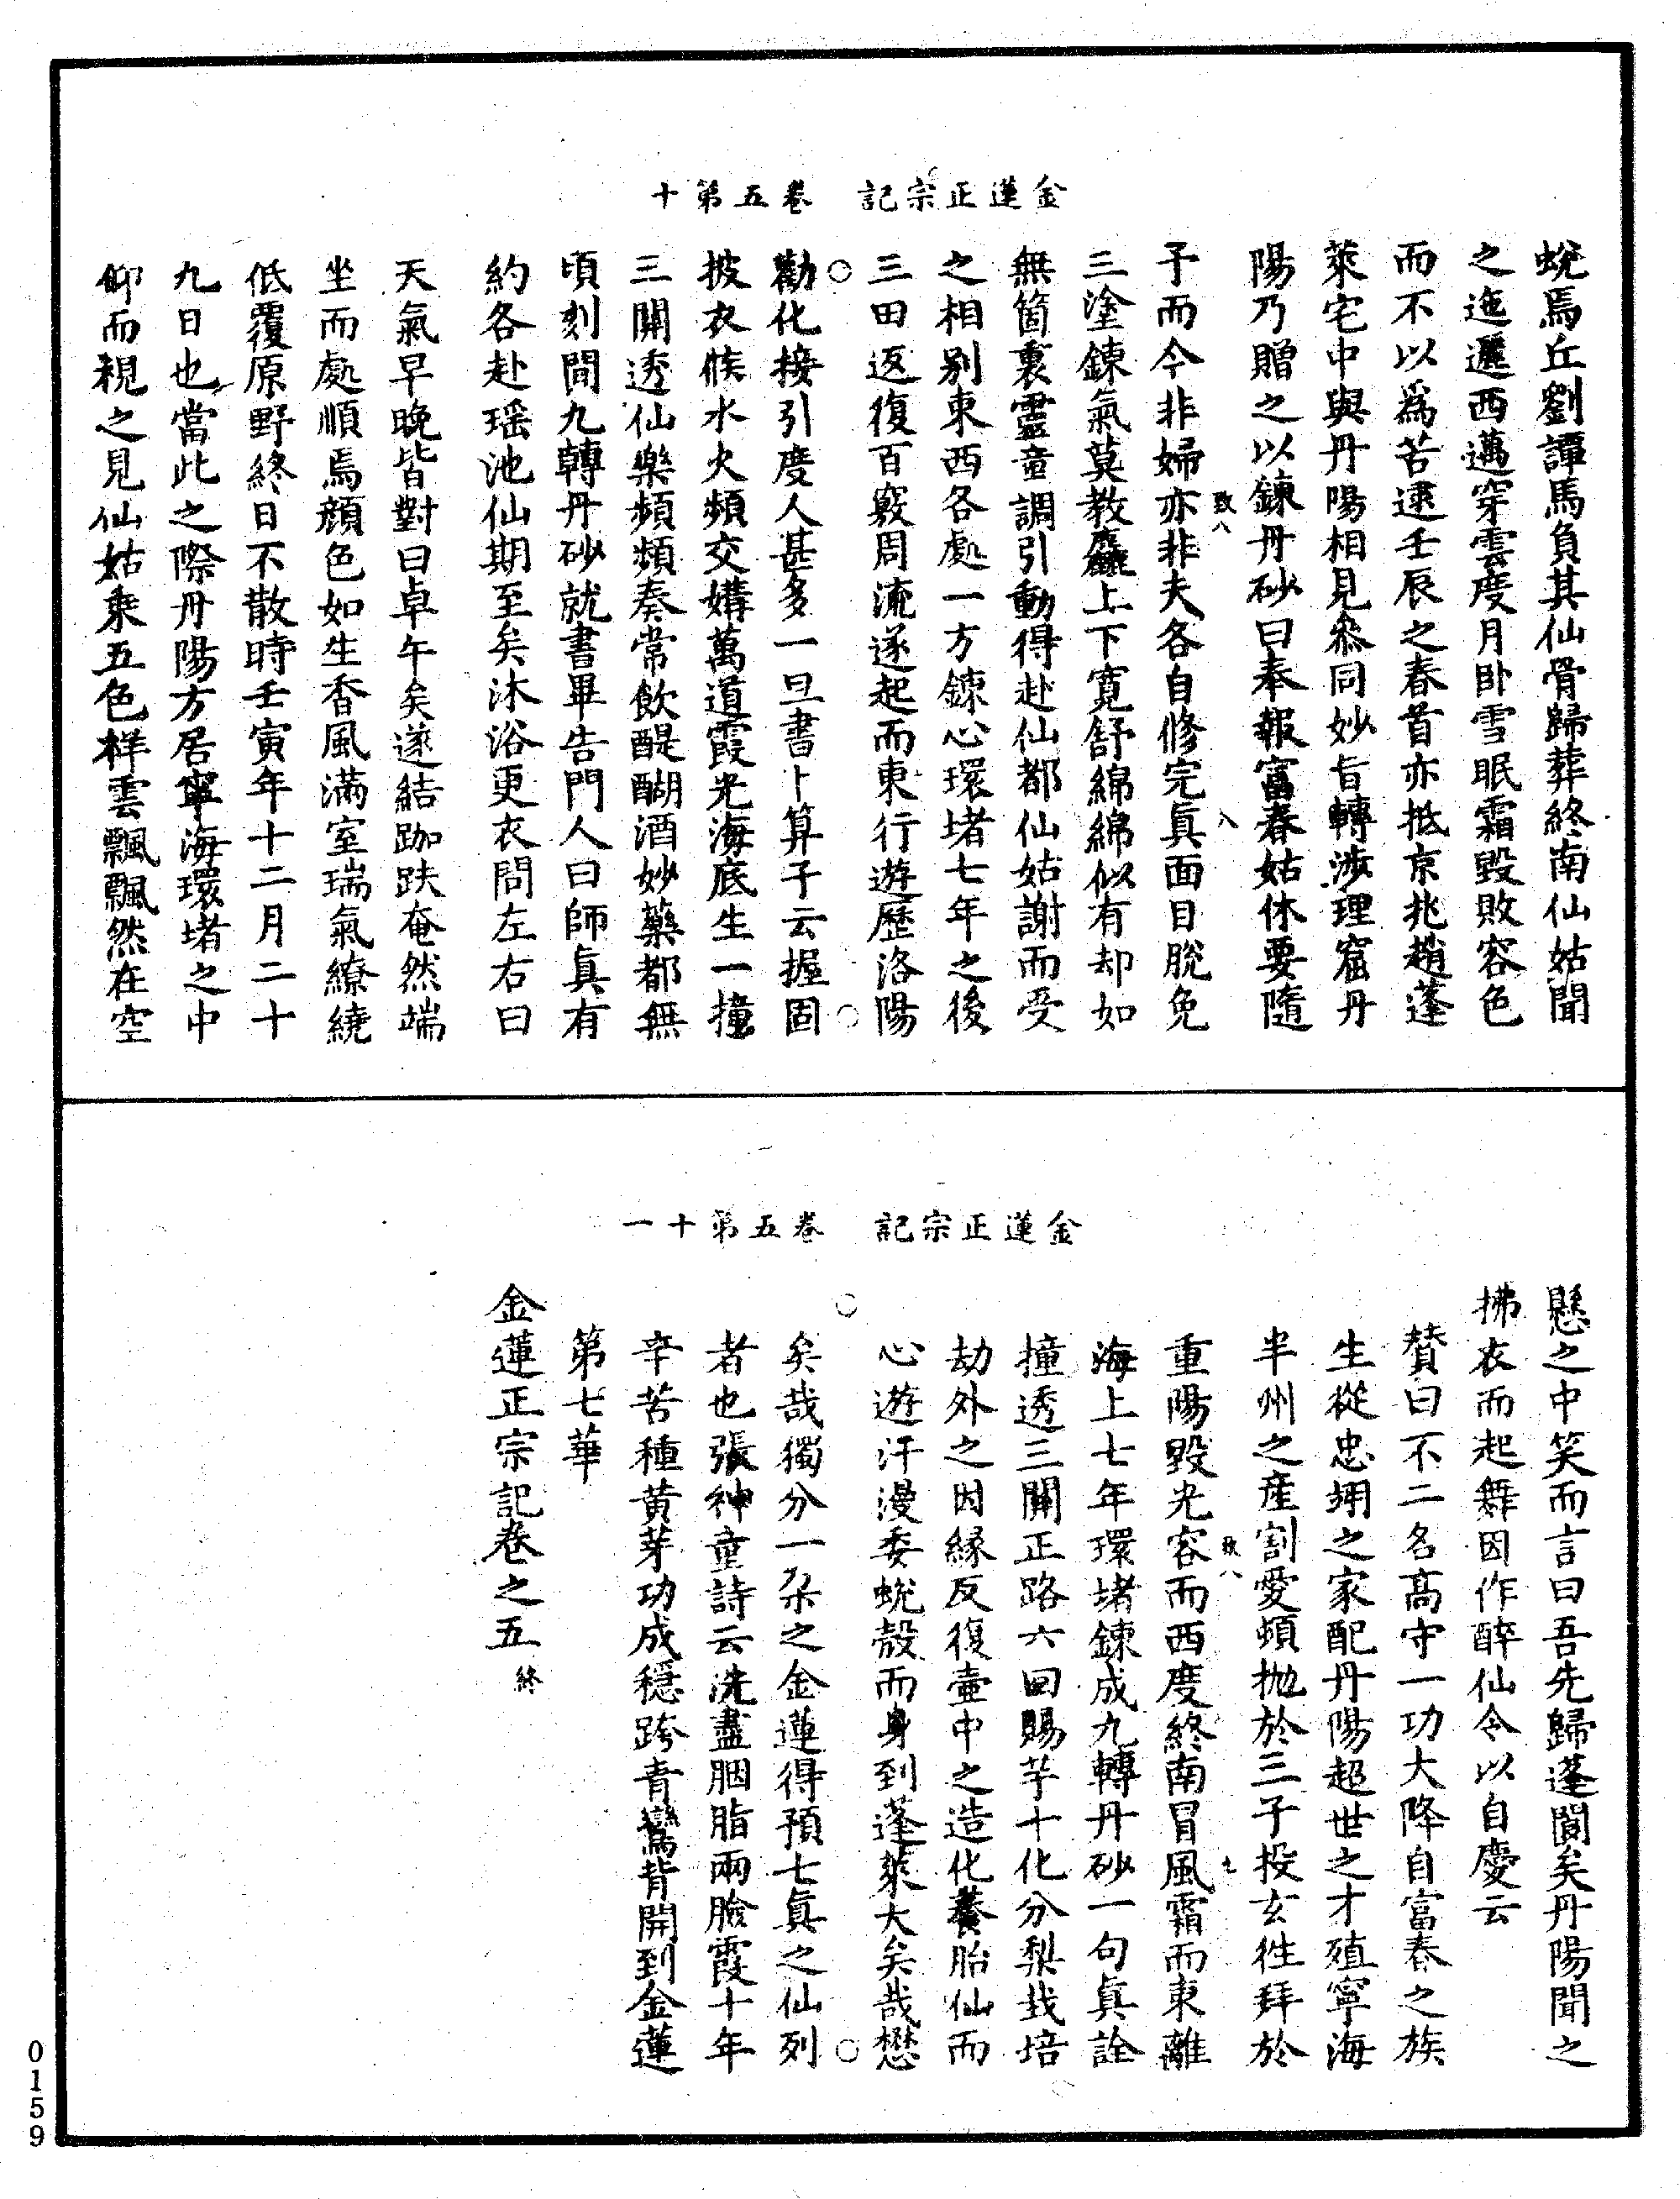 金蓮正宗記　卷五第十
蛻焉丘劉譚馬負其仙骨歸葬終南仙姑聞
之迤邐西邁穿雲度月卧雪眠霜毀敗容色
而不以爲苦逮壬辰之春首亦抵京兆趙蓬
萊宅中與丹陽相見叅同妙旨轉涉理窟丹
陽乃贈之以鍊丹砂曰奉報富春姑休要隨
予而今非婦亦非夫各自修完眞面目脫免
三塗鍊氣莫教麤上下寬舒綿綿似有却如
無箇裏靈童調引動得赴仙都仙姑謝而受
之相别東西各處一方鍊心環堵七年之後
三田返復百竅周流遂起而東行遊歷洛陽
勸化接引度人甚多一旦書卜算子云握固
披衣候水火頻交媾萬道霞光海底生一撞
三關透仙樂頻頻奏常飲醍醐酒妙藥都無
頃刻間九轉丹砂就書畢告門人曰師眞有
約各赴瑶池仙期至矣沐浴更衣問左右曰
天氣早晚皆對曰卓午矣遂結跏趺奄然端
坐而處順焉顔色如生香風滿室瑞氣繚繞
低覆原野終日不散時壬寅年十二月二十
九日也當此之際丹陽方居寧海環堵之中
仰而視之見仙姑乘五色祥雲飄飄然在空
致八
金蓮正宗記　卷五第十一
懸之中笑而言曰吾先歸蓬閬矣丹陽聞之
拂衣而起舞因作醉仙令以自慶云
贊曰不二名高守一功大降自富春之族
生從忠翊之家配丹陽超世之才殖寧海
半州之產割愛頓抛於三子投玄徃拜於
重陽毀光容而西度終南冒風霜而東離
海上七年環堵鍊成九轉丹砂一句眞詮
撞透三關正路六回賜芋十化分梨栽培
劫外之因緣反復壷中之造化養胎仙而
心遊汗漫委蛻殼而身到蓬萊大矣哉懋
矣哉獨分一朶之金蓮得預七眞之仙列
者也張神童詩云洗盡胭脂兩臉霞十年
辛苦種黄芽功成穩跨青鸞背開到金蓮
第七華
金蓮正宗記卷之五 終
致八
0159